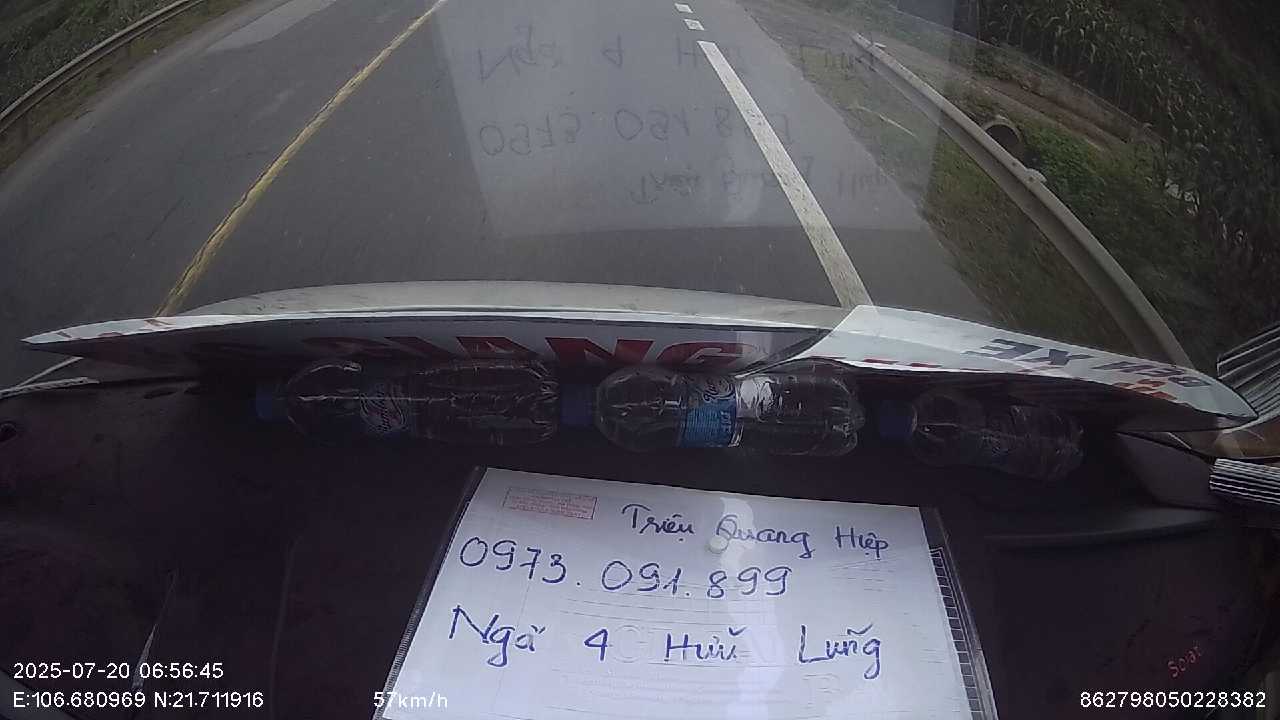 GIANG
BẾN XE
Triệu Quang Hiệp
0973.091.899
Ngã 4 Hữu Lũng
2025-07-20 06:56:45
E:106.680969 N:21.711916
57km/h
862798050228382